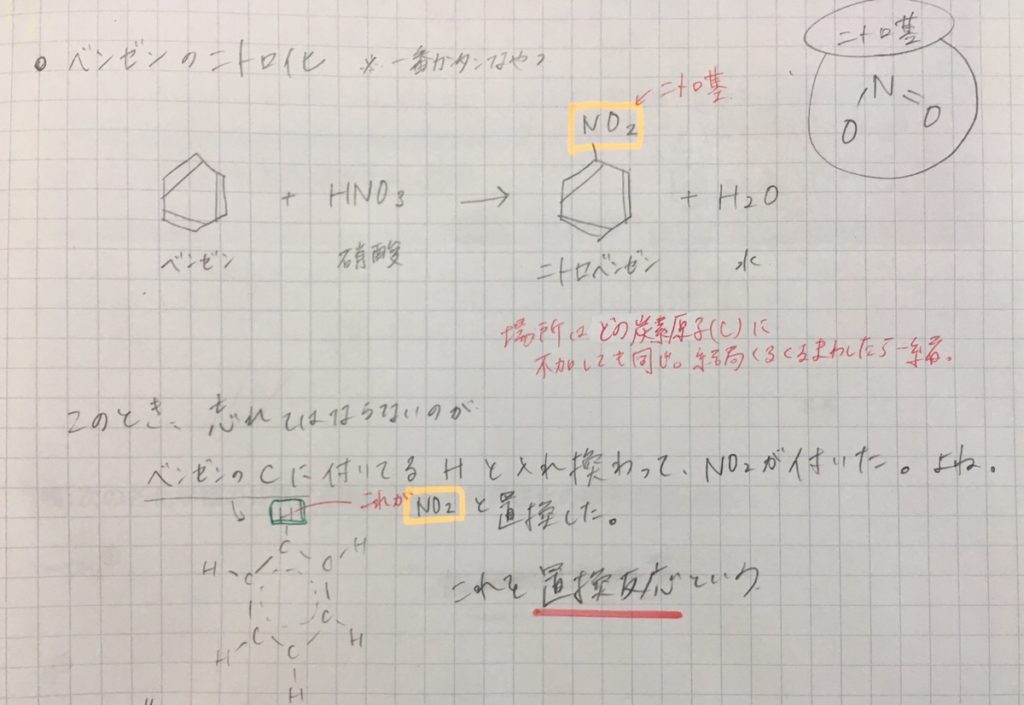 ベンゼンのニトロ化 ※一番カンタンなやつ
ニトロ基
N
O O
ニトロ基
NO2
+ HNO3 → + H2O
ベンゼン 硝酸 ニトロベンゼン 水
場所はどの炭素原子(C)に
不加しても同じ。結局くるくるまわしたら一緒。
このとき、忘れてはならないのが
ベンゼンのCに付いてるHと入れ換わって、NO2が付いた。よね。
H これが NO2 と置換した。
C
H C C H
これを置換反応という
C C
H C H
H